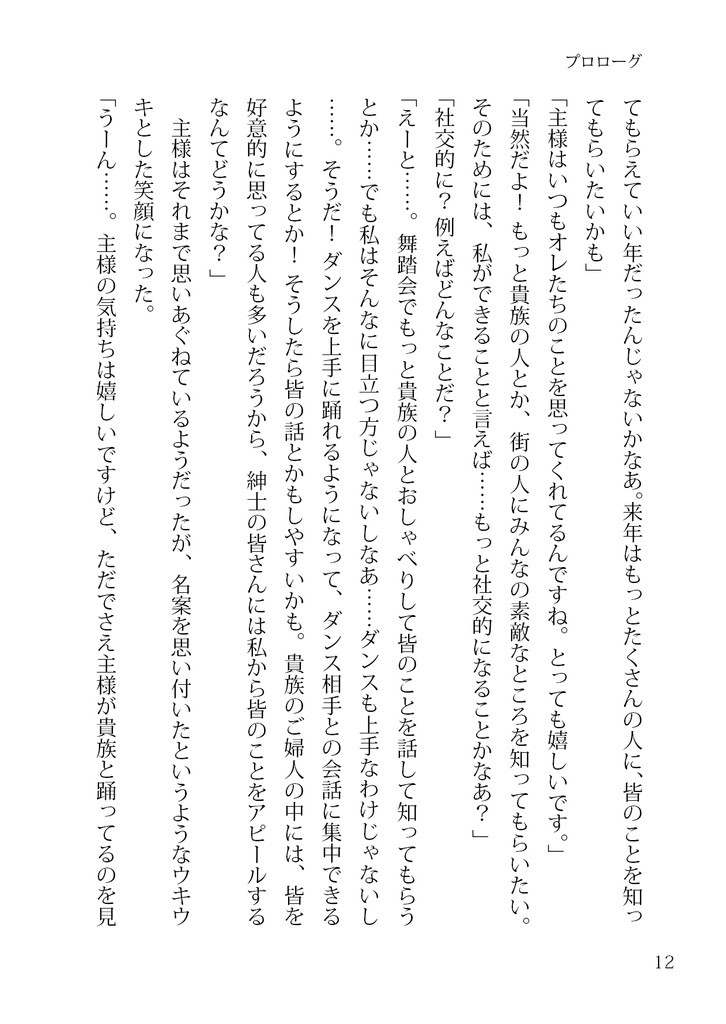 プロローグ
てもらえていい年だったんじゃないかなあ。来年はもっとたくさんの人に、皆のことを知っ
てもらいたいかも」
「主様はいつもオレたちのことを思ってくれてるんですね。とっても嬉しいです。」
「当然だよ！ もっと貴族の人とか、街の人にみんなの素敵なところを知ってもらいたい。
そのためには、私ができることと言えば……もっと社交的になることかなあ？」
「社交的に？ 例えばどんなことだ？」
「えーと……。舞踏会でもっと貴族の人とおしゃべりして皆のことを話して知ってもらう
とか……でも私はそんなに目立つ方じゃないしなあ……ダンスも上手なわけじゃないし
……。そうだ！ ダンスを上手に踊れるようになって、ダンス相手との会話に集中できる
ようにするとか！ そうしたら皆の話とかもしやすいかも。貴族のご婦人の中には、皆を
好意的に思ってる人も多いだろうから、紳士の皆さんには私から皆のことをアピールする
なんてどうかな？」
　主様はそれまで思いあぐねているようだったが、名案を思い付いたというようなウキウ
キとした笑顔になった。
「うーん……。主様の気持ちは嬉しいですけど、ただでさえ主様が貴族と踊ってるのを見
12